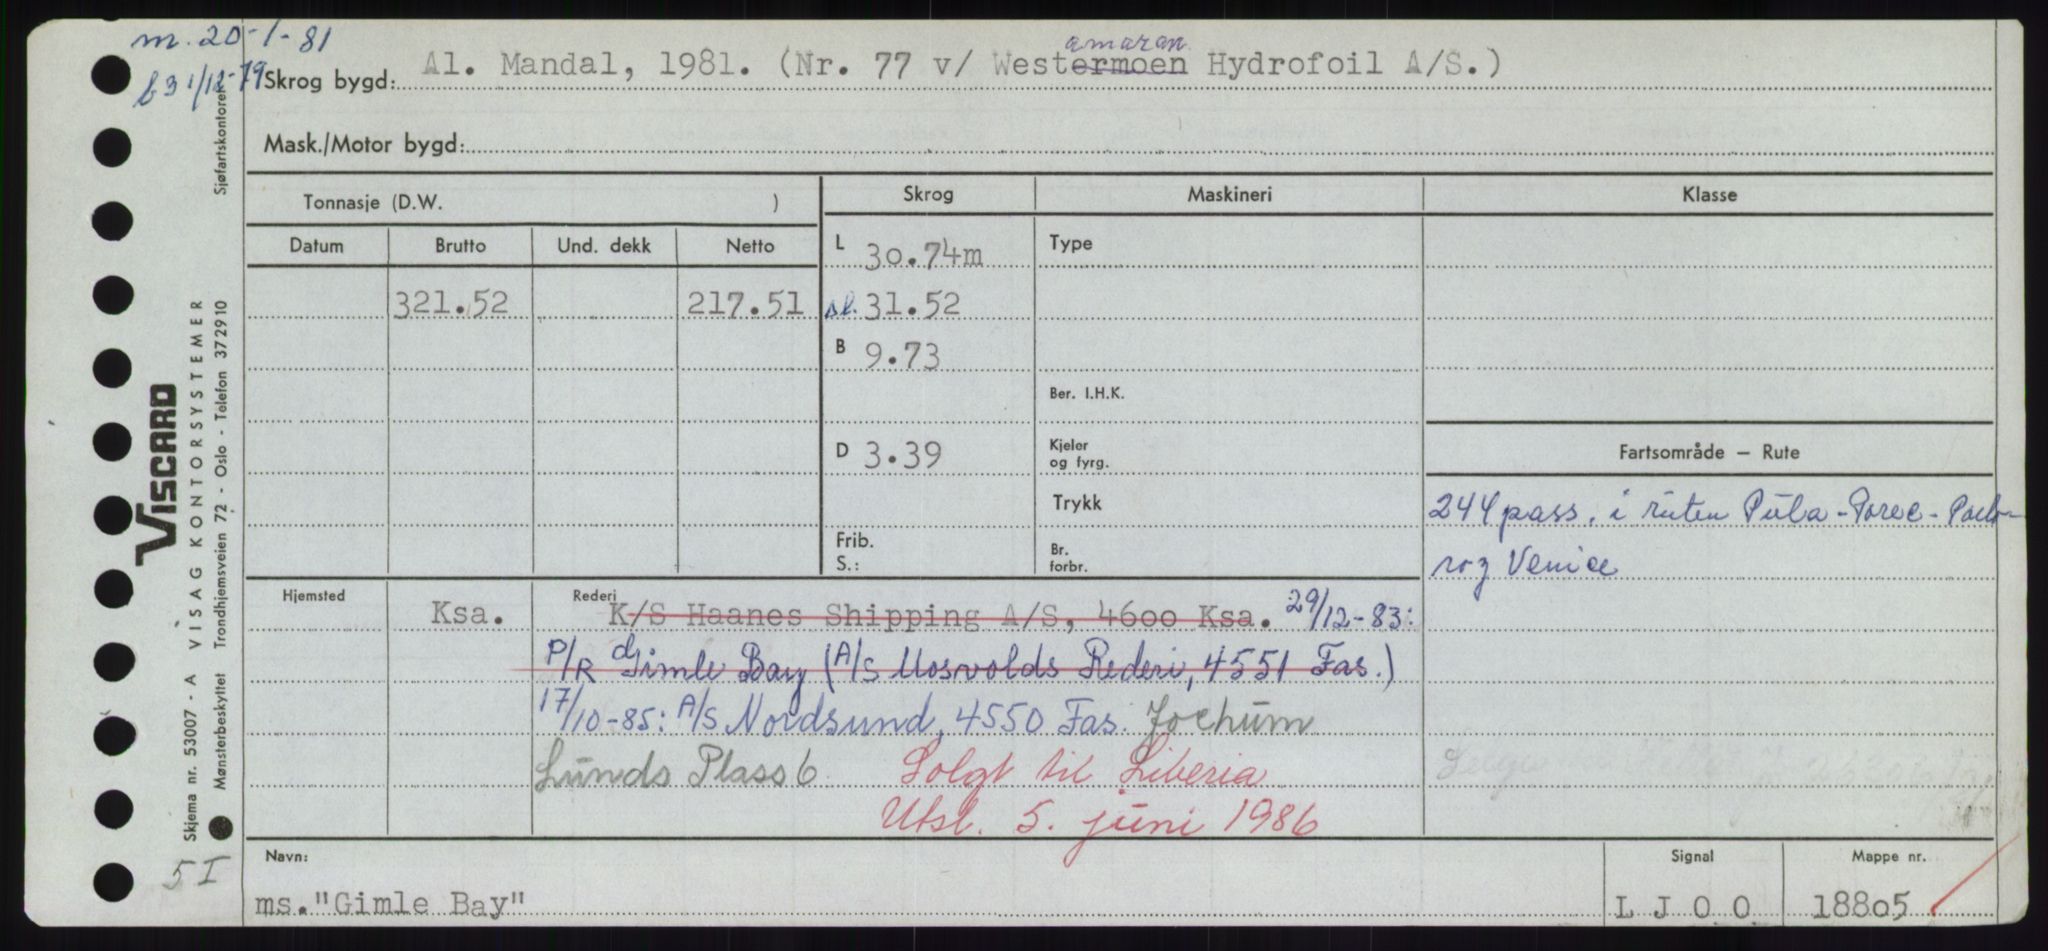 m. 20-1-81
b 31/12-79
Skrog bygd: Al. Mandal, 1981. (Nr. 77 v/ Westermoen Hydrofoil A/S.)
amaran
Mask./Motor bygd:
Sjøfartskontoret
Tonnasje (D.W. )
Skrog
Maskineri
Klasse
Datum
Brutto
Und. dekk
Netto
L 30.74m
Type
321.52
217.51
sl. 31.52
B 9.73
Ber. I.H.K.
D 3.39
Kjeler
og fyrg.
Fartsområde — Rute
Trykk
244 pass. i ruten Pula - Porec - Porto-
roz Venice
Frib.
S.:
Br.
forbr.
Hjemsted
Ksa.
Rederi
K/S Haanes Shipping A/S, 4600 Ksa. 29/12-83:
P/R Gimle Bay (A/S Mosvolds Rederi, 4551 Fas.)
17/10-85: A/S Nordsund, 4550 Fas. Jochum
Lunds Plass 6 Solgt til Liberia
Utsl. 5. juni 1986
Navn:
ms."Gimle Bay"
Signal
L J O O
Mappe nr.
18805
VISCARD
VISAG KONTORSYSTEMER
Skjema nr. 53007 - A
Mønsterbeskyttet Trondhjemsveien 72 - Oslo - Telefon 372910
5 I